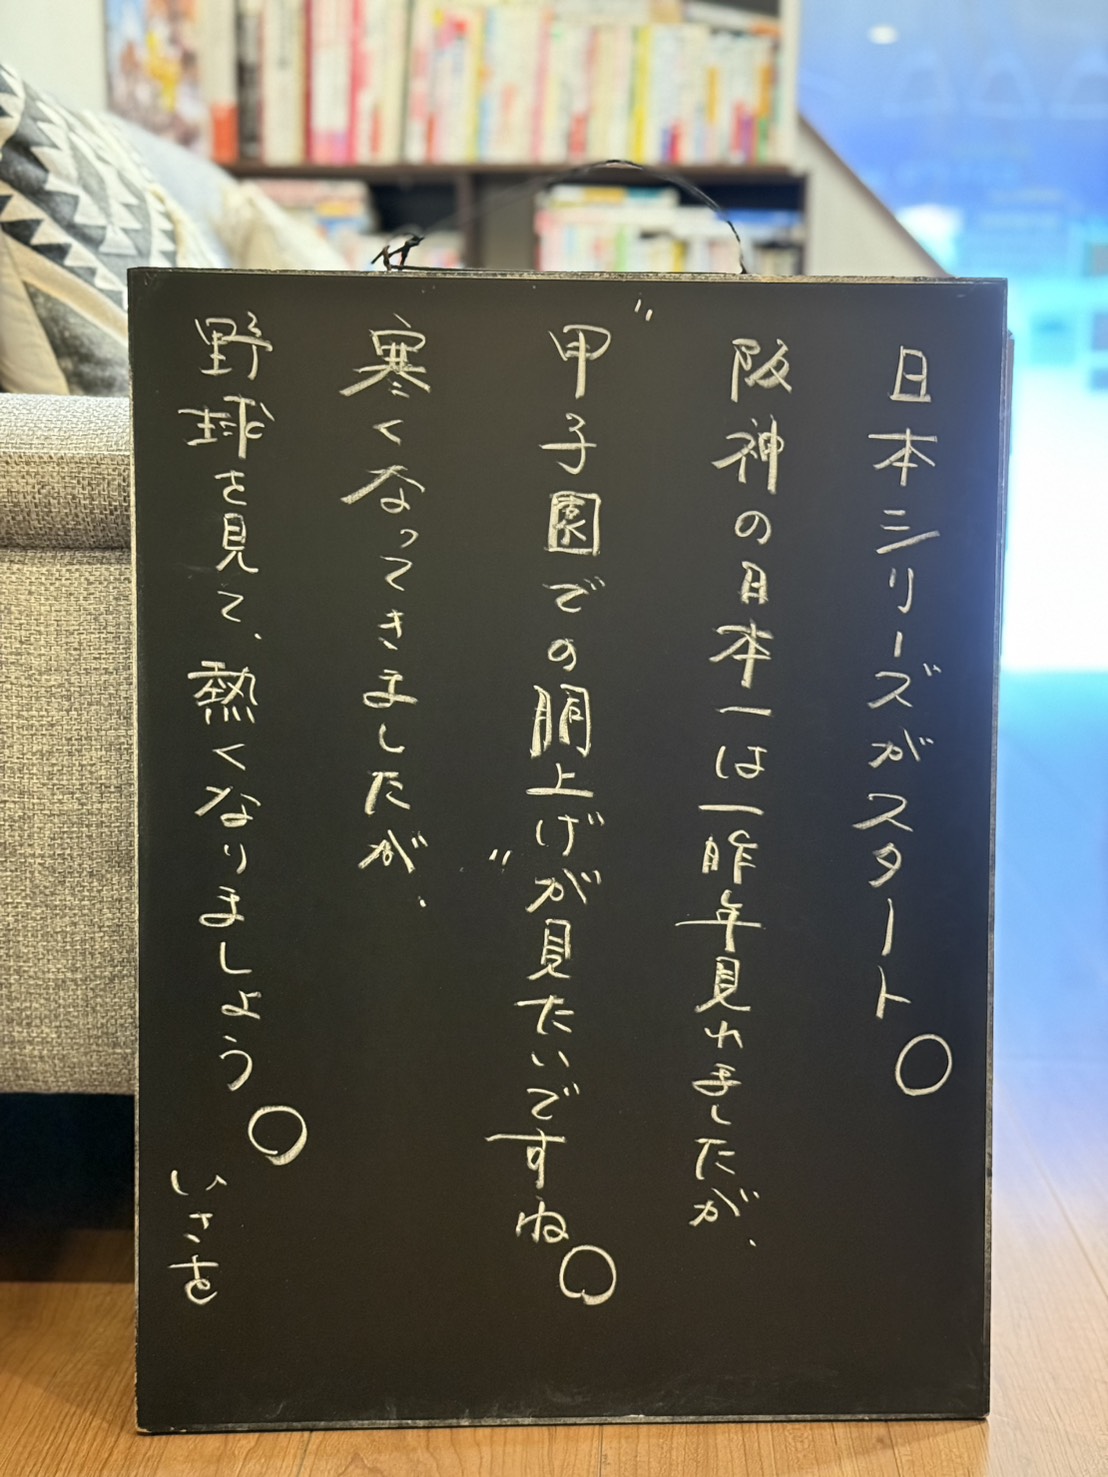 日本シリーズがスタート。
阪神の日本一は一昨年見れましたが、
"甲子園での胴上げ"が見たいですね。
寒くなってきましたが、
野球を見て、熱くなりましょう。
いさを